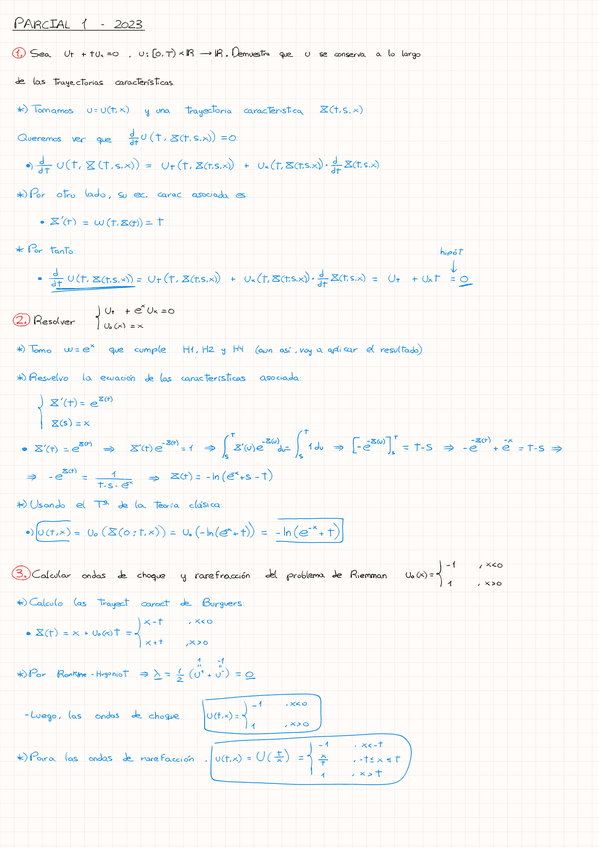 PARCIAL 1 - 2023
1. Sea U_t + t U_x = 0 , U: [0,T) × ℝ → ℝ. Demuestra que u se conserva a lo largo
de las trayectorias características.
*) Tomamos u = u(t,x) y una trayectoria característica X(t,s,x)
Queremos ver que d/dt U(t, X(t,s,x)) = 0
•) d/dt U(t, X(t,s,x)) = U_t(t, X(t,s,x)) + U_x(t, X(t,s,x)) · d/dt X(t,s,x)
*) Por otro lado, su ec. carac asociada es
• X'(t) = w(t, X(t)) = t
* Por tanto
hipót
• d/dt U(t, X(t,s,x)) = U_t(t, X(t,s,x)) + U_x(t, X(t,s,x)) · d/dt X(t,s,x) = U_t + U_x t = 0
2. Resolver { U_t + e^x U_x = 0
U_0(x) = x
*) Tomo w = e^x que cumple H1, H2 y H4 (aun así, voy a aplicar el resultado)
*) Resuelvo la ecuación de las características asociada
{ X'(t) = e^X(t)
X(s) = x
• X'(t) = e^X(t) ⇒ X'(t) e^-X(t) = 1 ⇒ ∫_s^t X'(u) e^-X(u) du = ∫_s^t 1 du ⇒ [-e^-X(u)]_s^t = t-s ⇒ -e^-X(t) + e^-x = t-s ⇒
⇒ -e^X(t) = 1/(t-s-e^-x) ⇒ X(t) = -ln(e^-x + s - t)
*) Usando el Tª de la teoría clásica
•) U(t,x) = U_0(X(0;t,x)) = U_0(-ln(e^-x + t)) = -ln(e^-x + t)
3. Calcular ondas de choque y rarefracción del problema de Riemman U_0(x) = { -1 , x<0
1 , x>0
*) Calculo las trayect caract de Burguers
• X(t) = x + U_0(x)t = { x-t , x<0
x+t , x>0
*) Por Rankine-Hugoniot ⇒ λ = 1/2 (U^+ + U^-) = 0
1 -1
- Luego, las ondas de choque U(t,x) = { -1 , x<0
1 , x>0
*) Para las ondas de rarefacción , U(t,x) = U(t/x) = { -1 , x<-t
x/t , -t ≤ x ≤ t
1 , x>t